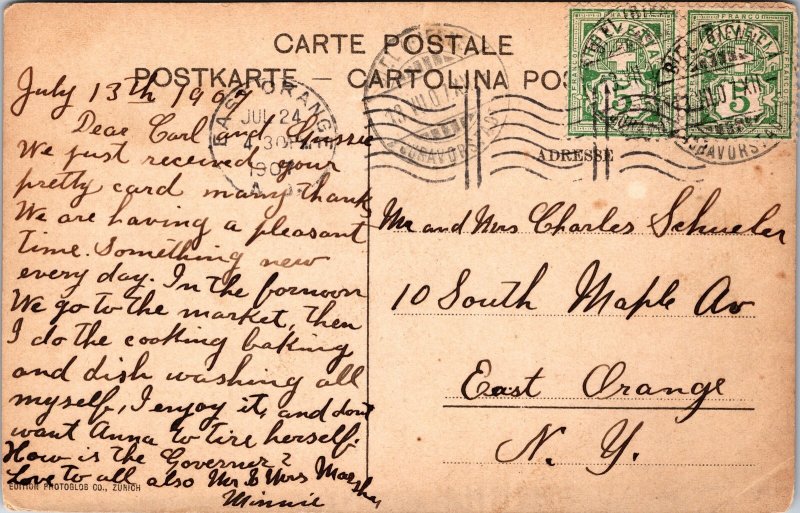 CARTE POSTALE
POSTKARTE — CARTOLINA POS
ADRESSE
July 13th 1907
Dear Carl and Gussie
We just received your
pretty card many thanks
We are having a pleasant
time. Something new
every day. In the fornoon
We go to the market, then
I do the cooking baking
and dish washing all
myself, I enjoy it, and dont
want Anna to tire herself.
How is the Governer?
Love to all also Mr & Mrs
Minnie
EDITION PHOTOGLOB CO., ZÜRICH
Mr and Mrs Charles Schueler
10 South Maple Av
East Orange
N. Y.
EAST ORANGE
JUL 24
4 30 PM
1907
FRANCO
5
FRANCO
5